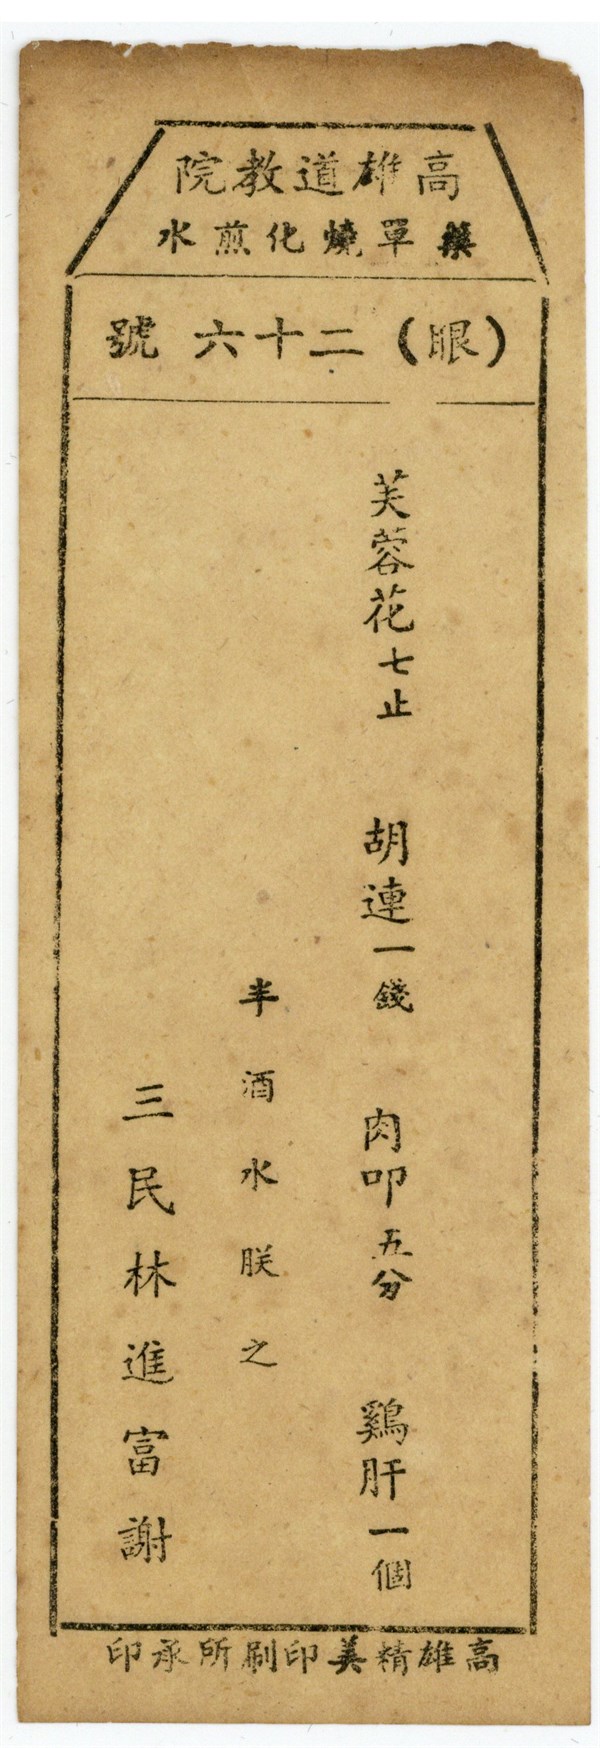 高雄道教院
藥單燒化煎水
（眼）二十六 號
芙蓉花七止 胡連一錢 肉叩五分 鷄肝一個
半酒水朕之
三民林進富謝
高雄精美印刷所承印